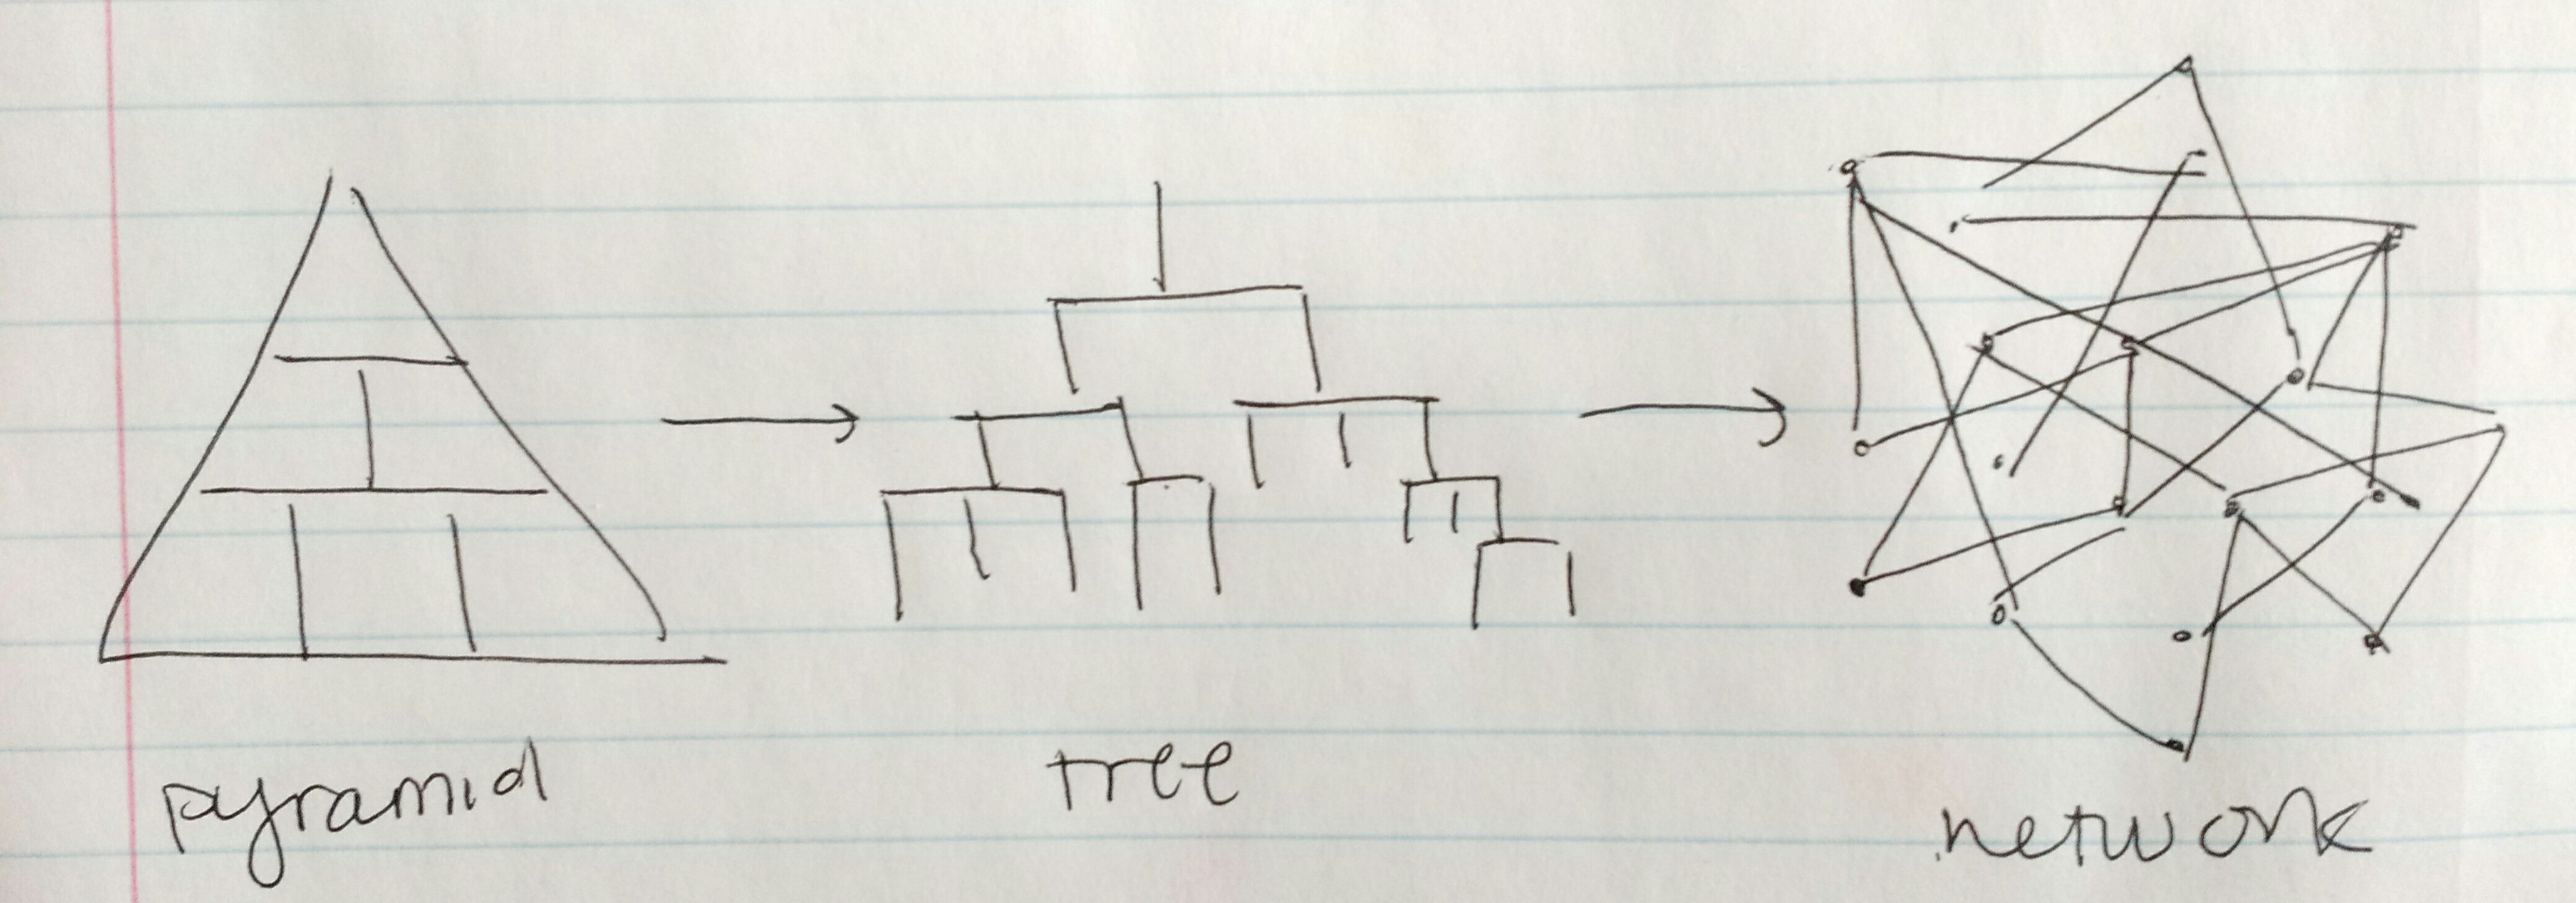 pyramid tree network